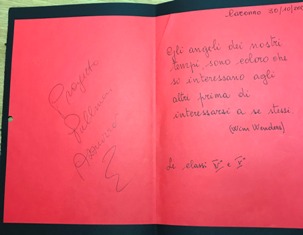 Progetto
Pullman
Azzurro
Saronno 20/10/
Gli angeli dei nostri
tempi sono coloro che
si interessano agli
altri prima di
interessarsi a se stessi.
(Wim Wenders)
Le classi V e V